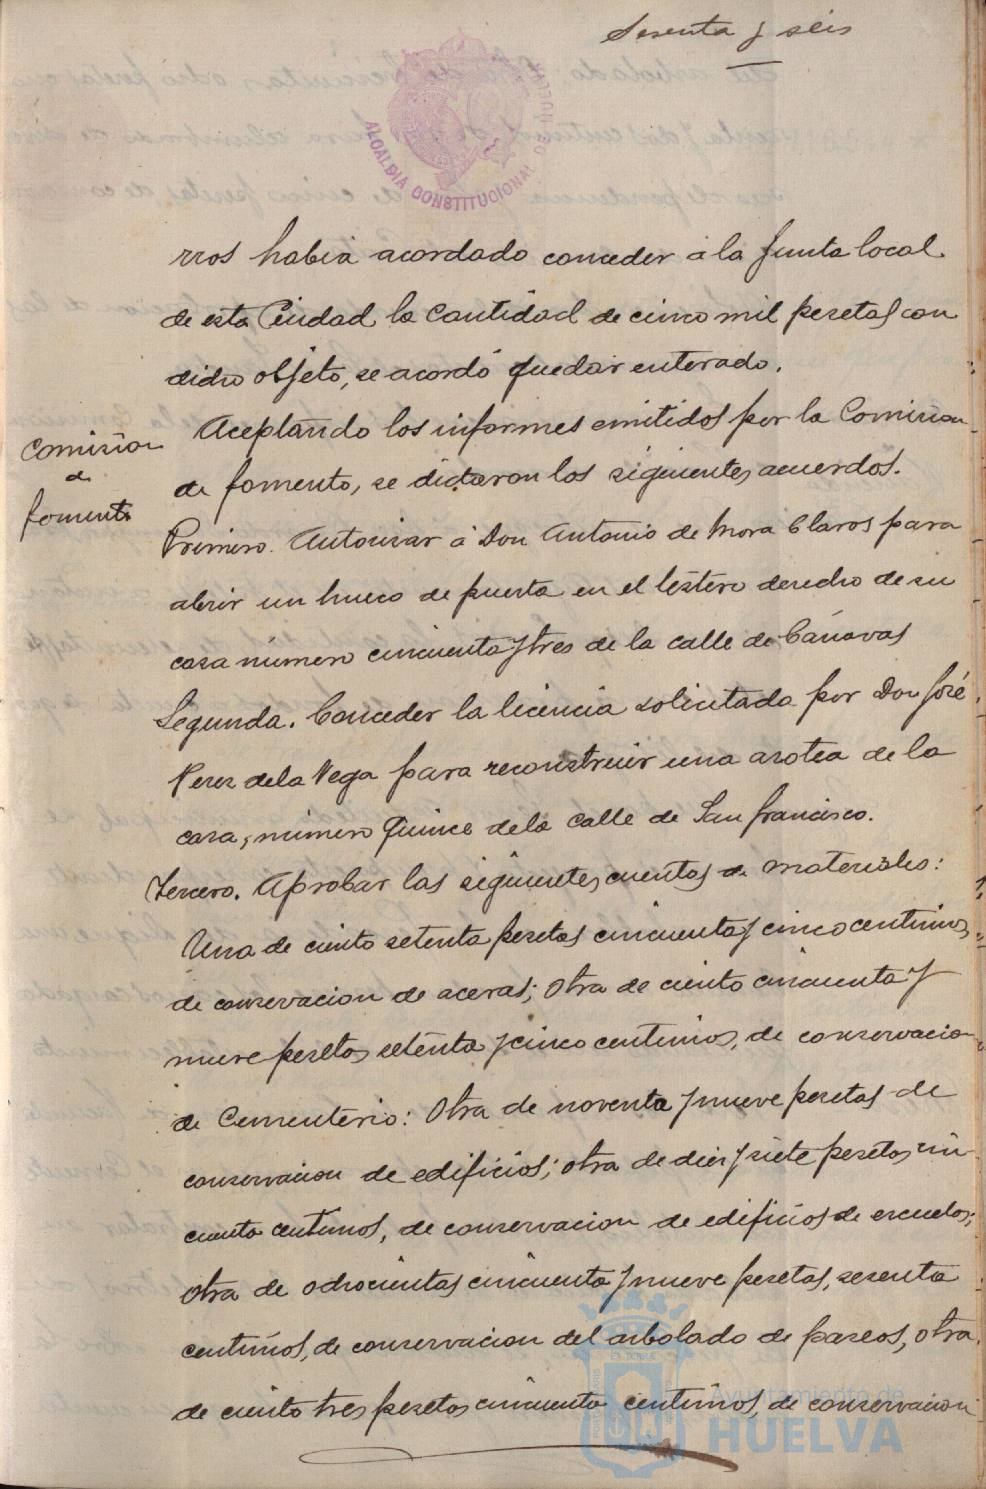 Sesenta y seis
ALCALDIA CONSTITUCIONAL DE HUELVA
rros habia acordado conceder á la Junta local
de esta Ciudad la cantidad de cinco mil pesetas con
dicho objeto, se acordó quedar enterado.
Comision
de
fomento
Aceptando los informes emitidos por la Comision
de fomento, se dictaron los siguientes acuerdos.
Primero. Autorizar á Don Antonio de Mora Claros para
abrir un hueco de puerta en el testero derecho de su
casa número cincuenta y tres de la calle de Cánovas
Segunda. Conceder la licencia solicitada por Don José
Perez de la Vega para reconstruir una azotea de la
casa, número quince de la calle de San Francisco.
Tercero. Aprobar las siguientes cuentas de materiales:
Una de ciento setenta pesetas cincuenta y cinco centimos,
de conservacion de aceras; otra de ciento cincuenta y
nueve pesetas setenta y cinco centimos, de conservacion
de Cementerio: Otra de noventa y nueve pesetas de
conservacion de edificios; otra de diez y siete pesetas cin-
cuenta centimos, de conservacion de edificios de escuelas;
otra de ochocientas cincuenta y nueve pesetas, sesenta
centimos, de conservacion del arbolado de paseos, otra
de ciento tres pesetas cincuenta centimos, de conservacion
Ayuntamiento de
HUELVA